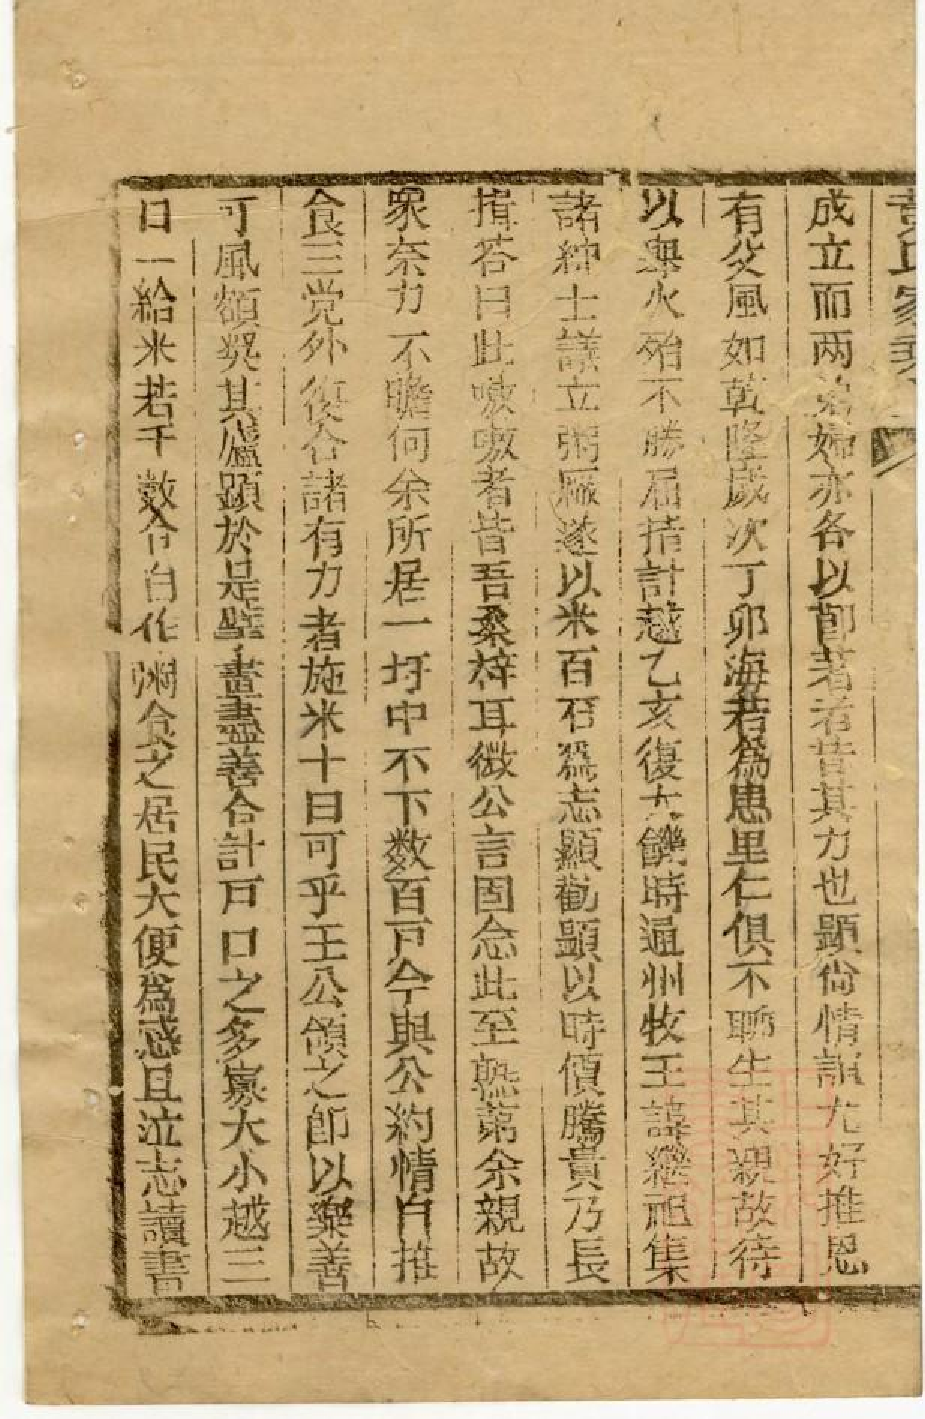 氏家乘
成立而两弟婦亦各以節著者皆其力也顯尚情誼尤好推恩
有父風如乾隆歲次丁卯海若為患里仁俱不聊生其親故待
以舉火殆不勝屈指計越乙亥復大饑時通州牧王諱繼祖集
諸紳士議立粥廠遂以米百石為志顯勸顯以時價騰貴乃長
揖答曰此嗷嗷者皆吾桑梓耳微公言固念此至熟第余親故
眾奈力不瞻何余所居一圩中不下数百戸今與公約情自推
食三党外復合諸有力者施米十日可乎王公頷之即以樂善
可風額奨其廬顕於是壁畫盡善合計戸口之多寡大小越三
日一給米若干数令自作粥食之居民大便為感且泣志讀書